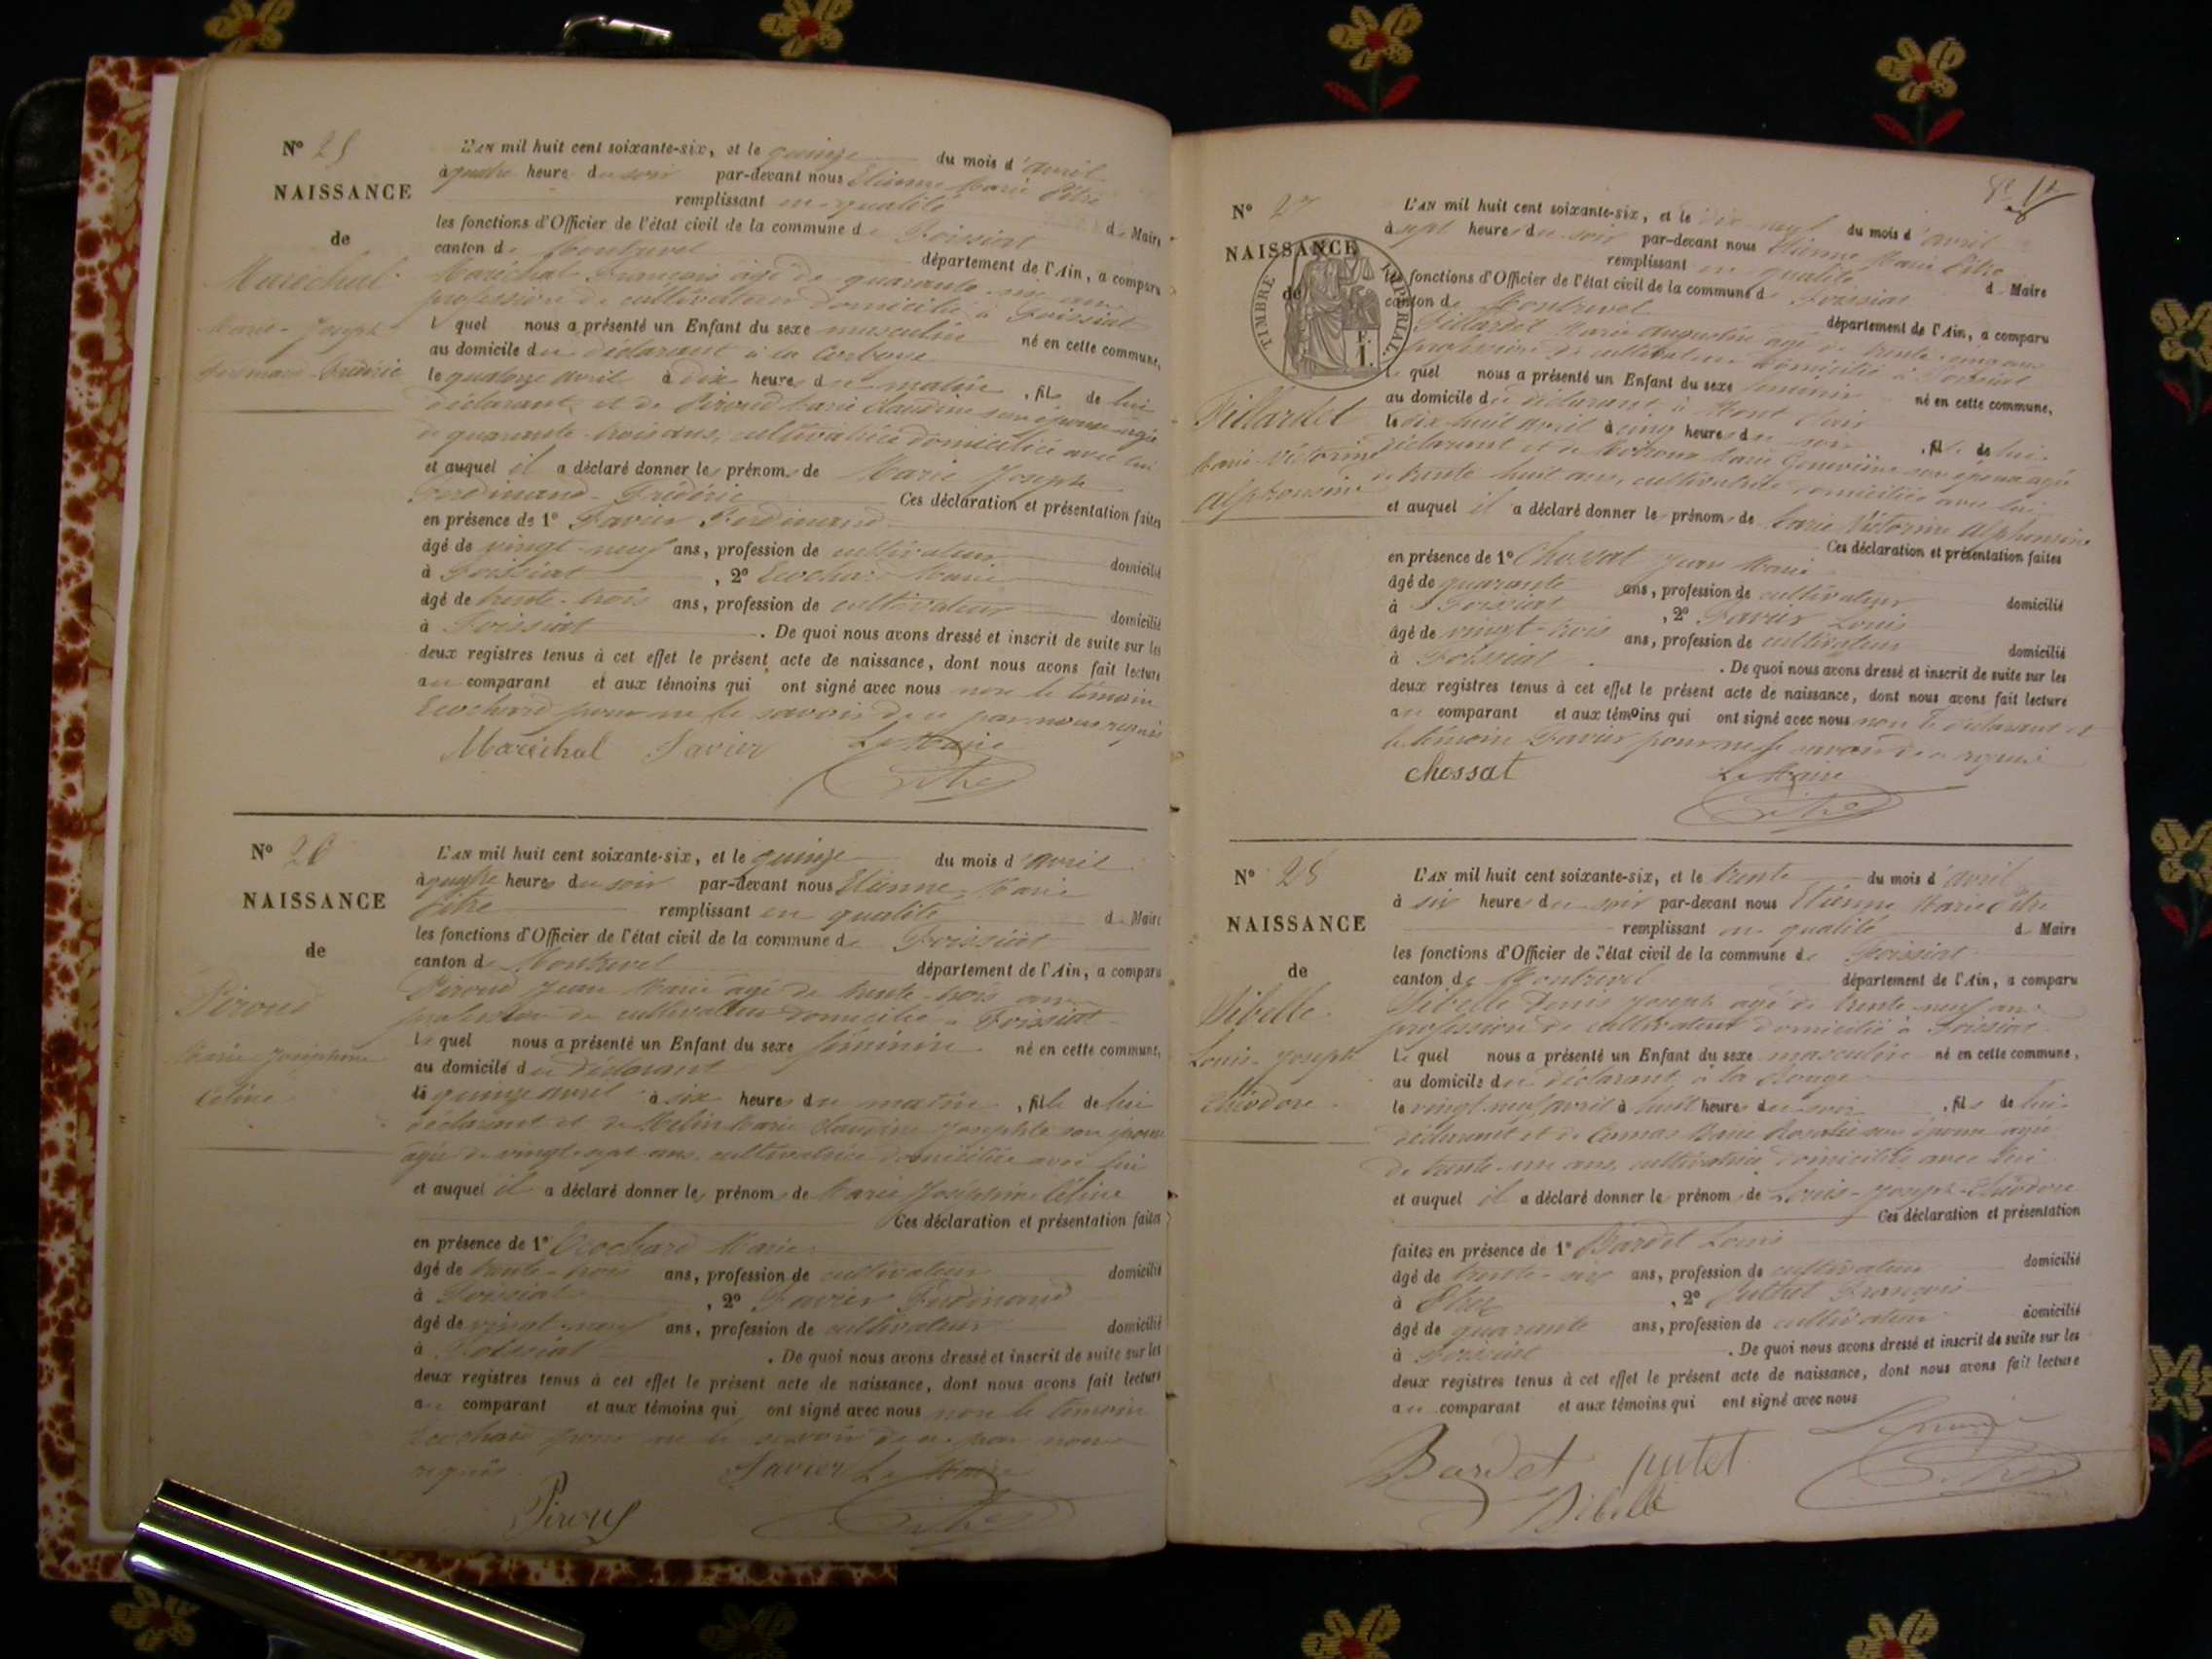 N° 25
NAISSANCE
de
Maréchal
Marie-Joseph
Ferdinand-Frédéric
L'AN mil huit cent soixante-six, et le quinze du mois d'avril
à quatre heure du soir par-devant nous Etienne Marie Pitre
remplissant en qualité d Maire
les fonctions d'Officier de l'état civil de la commune de Foissiat
canton de Montrevel département de l'Ain, a comparu
Maréchal François âgé de quarante-six ans
profession de cultivateur domicilié à Foissiat
lequel nous a présenté un Enfant du sexe masculin né en cette commune,
au domicile du déclarant à la
le quatorze avril à dix heures du matin, fils de lui
déclarant et de Piroud Marie Claudine son épouse âgée
de quarante-trois ans, cultivatrice domiciliée avec lui
et auquel il a déclaré donner les prénoms de Marie Joseph
Ferdinand-Frédéric Ces déclaration et présentation faites
en présence de 1° Favier Ferdinand
âgé de vingt-neuf ans, profession de cultivateur domicilié
à Foissiat, 2° Ecochard Marie
âgé de trente-trois ans, profession de cultivateur domicilié
à Foissiat. De quoi nous avons dressé et inscrit de suite sur les
deux registres tenus à cet effet le présent acte de naissance, dont nous avons fait lecture
au comparant et aux témoins qui ont signé avec nous non le témoin
Ecochard pour ne le savoir de ce par nous requis
Maréchal Favier Le Maire
Pitre
N° 26
NAISSANCE
de
Piroud
Marie-Joséphine
Céline
L'AN mil huit cent soixante-six, et le quinze du mois d'avril
à quatre heures du soir par-devant nous Etienne Marie
Pitre remplissant en qualité d Maire
les fonctions d'Officier de l'état civil de la commune de Foissiat
canton de Montrevel département de l'Ain, a comparu
Piroud Jean Marie âgé de trente-trois ans
profession de cultivateur domicilié à Foissiat
lequel nous a présenté un Enfant du sexe féminin né en cette commune,
au domicile du déclarant
le quinze avril à six heures du matin, fille de lui
déclarant et de Melin Marie Claudine Josephte son épouse
âgée de vingt-sept ans, cultivatrice domiciliée avec lui
et auquel il a déclaré donner les prénoms de Marie Joséphine Céline
Ces déclaration et présentation faites
en présence de 1° Ecochard Marie
âgé de trente-trois ans, profession de cultivateur domicilié
à Foissiat, 2° Favier Ferdinand
âgé de vingt-neuf ans, profession de cultivateur domicilié
à Foissiat. De quoi nous avons dressé et inscrit de suite sur les
deux registres tenus à cet effet le présent acte de naissance, dont nous avons fait lecture
au comparant et aux témoins qui ont signé avec nous non le témoin
Ecochard pour ne le savoir de ce par nous
requis. Favier Le Maire
Piroud Pitre
N° 27
NAISSANCE
de
TIMBRE IMPÉRIAL
Fillardet
Marie-Victorine
Alphonsine
L'AN mil huit cent soixante-six, et le dix-neuf du mois d'avril
à sept heures du soir par-devant nous Etienne Marie Pitre
remplissant en qualité d Maire
les fonctions d'Officier de l'état civil de la commune de Foissiat
canton de Montrevel département de l'Ain, a comparu
Fillardet Marie Augustin âgé de trente-cinq ans
profession de cultivateur domicilié à Foissiat
lequel nous a présenté un Enfant du sexe féminin né en cette commune,
au domicile du déclarant à Mont
le dix-huit avril à cinq heures du soir, fille de lui
déclarant et de Marie Geneviève son épouse âgée
de trente-huit ans, cultivatrice domiciliée avec lui
et auquel il a déclaré donner les prénoms de Marie Victorine Alphonsine
Ces déclaration et présentation faites
en présence de 1° Chossat Jean Marie
âgé de quarante ans, profession de cultivateur domicilié
à Foissiat, 2° Favier Louis
âgé de vingt-trois ans, profession de cultivateur domicilié
à Foissiat. De quoi nous avons dressé et inscrit de suite sur les
deux registres tenus à cet effet le présent acte de naissance, dont nous avons fait lecture
au comparant et aux témoins qui ont signé avec nous non le déclarant et
le témoin Favier pour ne le savoir de ce requis
chossat Le Maire
Pitre
N° 28
NAISSANCE
de
Dibelle
Louis-Joseph
Théodore
L'AN mil huit cent soixante-six, et le trente du mois d'avril
à six heures du soir par-devant nous Etienne Marie Pitre
remplissant en qualité d Maire
les fonctions d'Officier de l'état civil de la commune de Foissiat
canton de Montrevel département de l'Ain, a comparu
Dibelle Denis Joseph âgé de trente-neuf ans
profession de cultivateur domicilié à Foissiat
lequel nous a présenté un Enfant du sexe masculin né en cette commune,
au domicile du déclarant à la Rouge
le vingt-neuf avril à huit heures du soir, fils de lui
déclarant et de Marie Rosalie son épouse âgée
de trente-un ans, cultivatrice domiciliée avec lui
et auquel il a déclaré donner les prénoms de Louis-Joseph-Théodore
Ces déclaration et présentation
faites en présence de 1° Bardet Louis
âgé de trente-six ans, profession de cultivateur domicilié
à Etrez, 2° Puthet François
âgé de quarante ans, profession de cultivateur domicilié
à Foissiat. De quoi nous avons dressé et inscrit de suite sur les
deux registres tenus à cet effet le présent acte de naissance, dont nous avons fait lecture
au comparant et aux témoins qui ont signé avec nous
Bardet putet Le maire
Dibelle Pitre